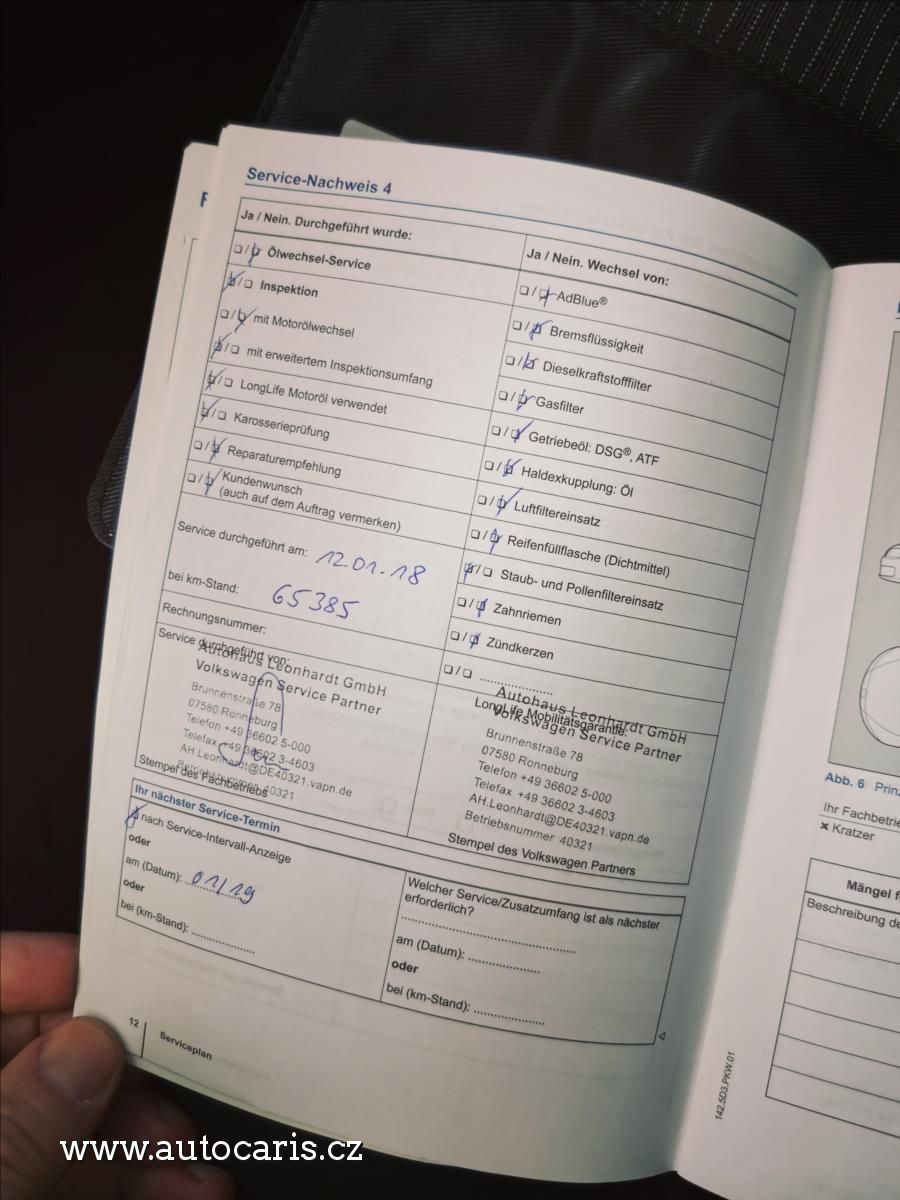 Service-Nachweis 4
Ja / Nein. Durchgeführt wurde:
❏ / ❏ Ölwechsel-Service
❏ / ❏ Inspektion
❏ / ❏ mit Motorölwechsel
❏ / ❏ mit erweitertem Inspektionsumfang
❏ / ❏ LongLife Motoröl verwendet
❏ / ❏ Karosserieprüfung
❏ / ❏ Reparaturempfehlung
❏ / ❏ Kundenwunsch
(auch auf dem Auftrag vermerken)
Service durchgeführt am: 12.01.18
bei km-Stand: 65385
Rechnungsnummer:
Service durchgeführt von:
Autohaus Leonhardt GmbH
Volkswagen Service Partner
Brunnenstraße 78
07580 Ronneburg
Telefon +49 36602 5-000
Telefax +49 36602 3-4603
AH.Leonhardt@DE40321.vapn.de
Betriebsnummer 40321
Stempel des Fachbetriebs
Ja / Nein. Wechsel von:
❏ / ❏ AdBlue®
❏ / ❏ Bremsflüssigkeit
❏ / ❏ Dieselkraftstofffilter
❏ / ❏ Gasfilter
❏ / ❏ Getriebeöl: DSG®, ATF
❏ / ❏ Haldexkupplung: Öl
❏ / ❏ Luftfiltereinsatz
❏ / ❏ Reifenfüllflasche (Dichtmittel)
❏ / ❏ Staub- und Pollenfiltereinsatz
❏ / ❏ Zahnriemen
❏ / ❏ Zündkerzen
❏ / ❏ ....................
LongLife Mobilitätsgarantie:
Autohaus Leonhardt GmbH
Volkswagen Service Partner
Brunnenstraße 78
07580 Ronneburg
Telefon +49 36602 5-000
Telefax +49 36602 3-4603
AH.Leonhardt@DE40321.vapn.de
Betriebsnummer 40321
Stempel des Volkswagen Partners
Ihr nächster Service-Termin
❏ nach Service-Intervall-Anzeige
oder
am (Datum): 01/19
oder
bei (km-Stand): ..................
Welcher Service/Zusatzumfang ist als nächster
erforderlich?
................................................
am (Datum): ....................
oder
bei (km-Stand): ....................
12
Serviceplan
142.5D3.PKW.01
Abb. 6
Ihr Fachbetrie
× Kratzer
Mängel f
Beschreibung de
www.autocaris.cz